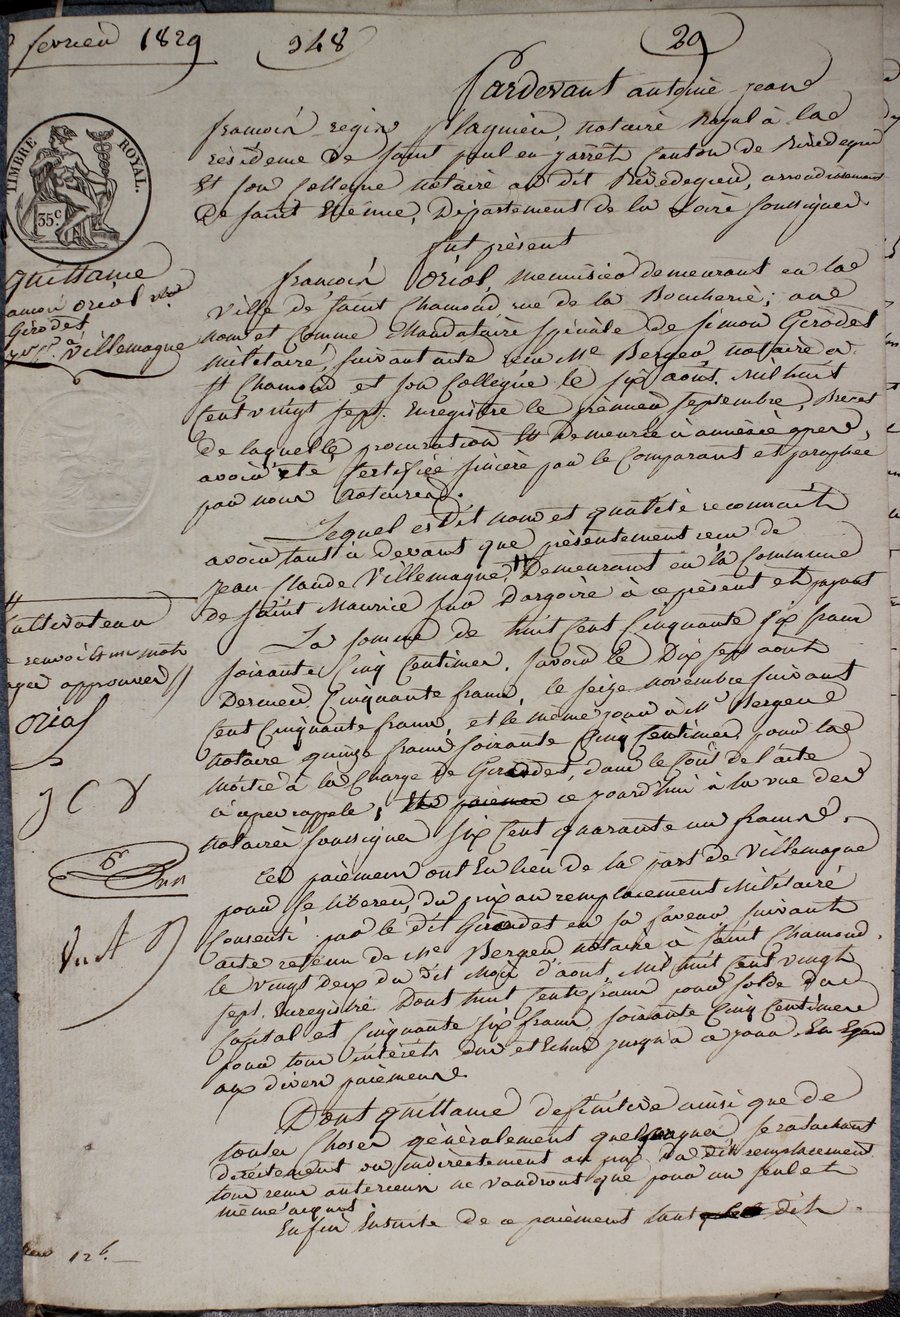 février 1829
348
29
TIMBRE ROYAL.
35 c
Pardevant antoine jean
françois regis flaquier, notaire Royal à la
résidence de saint paul en jarrêt Canton de Rivedegier
Et son Collegue notaire au dit Rivedegier, arrondissement
De saint Etienne, Département de la Loire soussignés.
fut présent
quittance
oriol
Gérodet
à
Villemagne
françois Oriol, menuisier demeurant en la
Ville de saint Chamond, rue de la Boucherie; au
nom et Comme Mandataire spéciale de simon Gérodet
Militaire, suivant acte reçu Me Berger notaire a
st Chamond et son Collegue le six août Mil huit
Cent vingt sept. Enregistré le premier septembre, Brevet
De laquelle procuration est Demeuré ci annéxé apres
avoir été Certifiée sincère par le Comparant et paraphée
par nous notaires.
Lequel es dit nom et qualité reconnait
avoir tant ci devant que présentement reçu de
Jean Claude Villemagne, // Demeurant en la Commune
De saint Maurice sur Dargoire à ce présent et payant
La somme de huit Cent Cinquante six francs
soixante Cinq Centimes. savoir le Dix sept août
Dernier Cinquante francs, le seize novembre suivant
Cent Cinquante francs, et le même jour a Me Berger
notaire quinze francs soixante Cinq Centimes pour la
moitié à la Charge de Gérodet, dans le Coût de l'acte
ci apres rappelé, ce jourd'hui à la vue des
notaires soussignés six Cent quarante un francs.
// Cultivateur
renvoi et un mots
rayés approuvés //
oriol
J C V
Ces paiemens ont Eu lieu de la part de Villemagne
pour se libérer, du prix au remplacement Militaire
Consenti par le dit Gérodet en sa faveur suivant
acte retenu de Me Berger notaire à saint Chamond
le vingt deux du dit Mois d'août, Mil huit Cent vingt
sept. Enregistré. Dont huit Cents francs pour solde du
Capital et Cinquante six francs soixante Cinq Centimes
pour tous intérêts dus et Echus jusqu'à ce jour. Eu Egard
aux divers paiemens.
Dont quittance définitive ainsi que de
toutes Choses généralement quelquonques se ratachant
directement ou indirectement au prix Du dit remplacement
tous reçus anterieurs ne Vaudront que pour un seul et
même acquit
Enfin Ensuite de ce paiement tout dit
12 f.